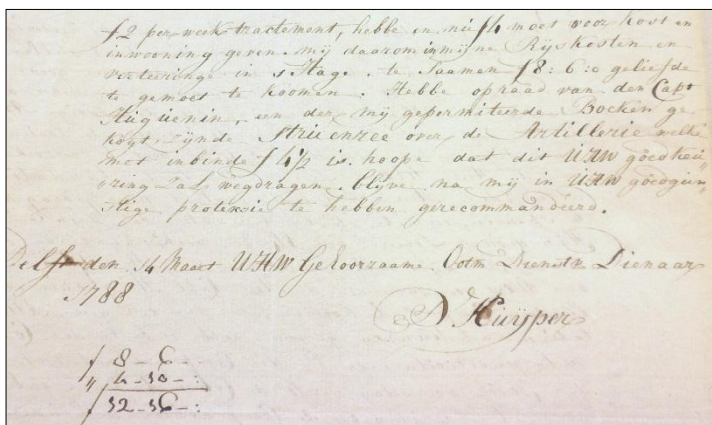 f2 per week tractement, hebbe en nu f4 moet voor kost en
inwooning geven. mij daarom in mijne Rijskosten en
verteeringe in s Hage. te Saamen f8:6:0 geliefde
te gemoet te koomen. Hebbe op raad van den Capt
Huguenin, een der mij gepermiteerde Boeken ge
kogt, zijnde Struenzee over de Artillerie welke
met inbinde f 4½ is. hoope dat dit UHW goedkeu
ring zal wegdragen. blijve na mij in UHW goedgun
stige protexie te hebben gerecommandeerd.
Delft den 14 Maart UHW Gehoorzaame Ootm Dienstw Dienaar
1788
D Kuijper
f 8 - 6 -
" 4 - 10 - :
f 12 - 16 - :